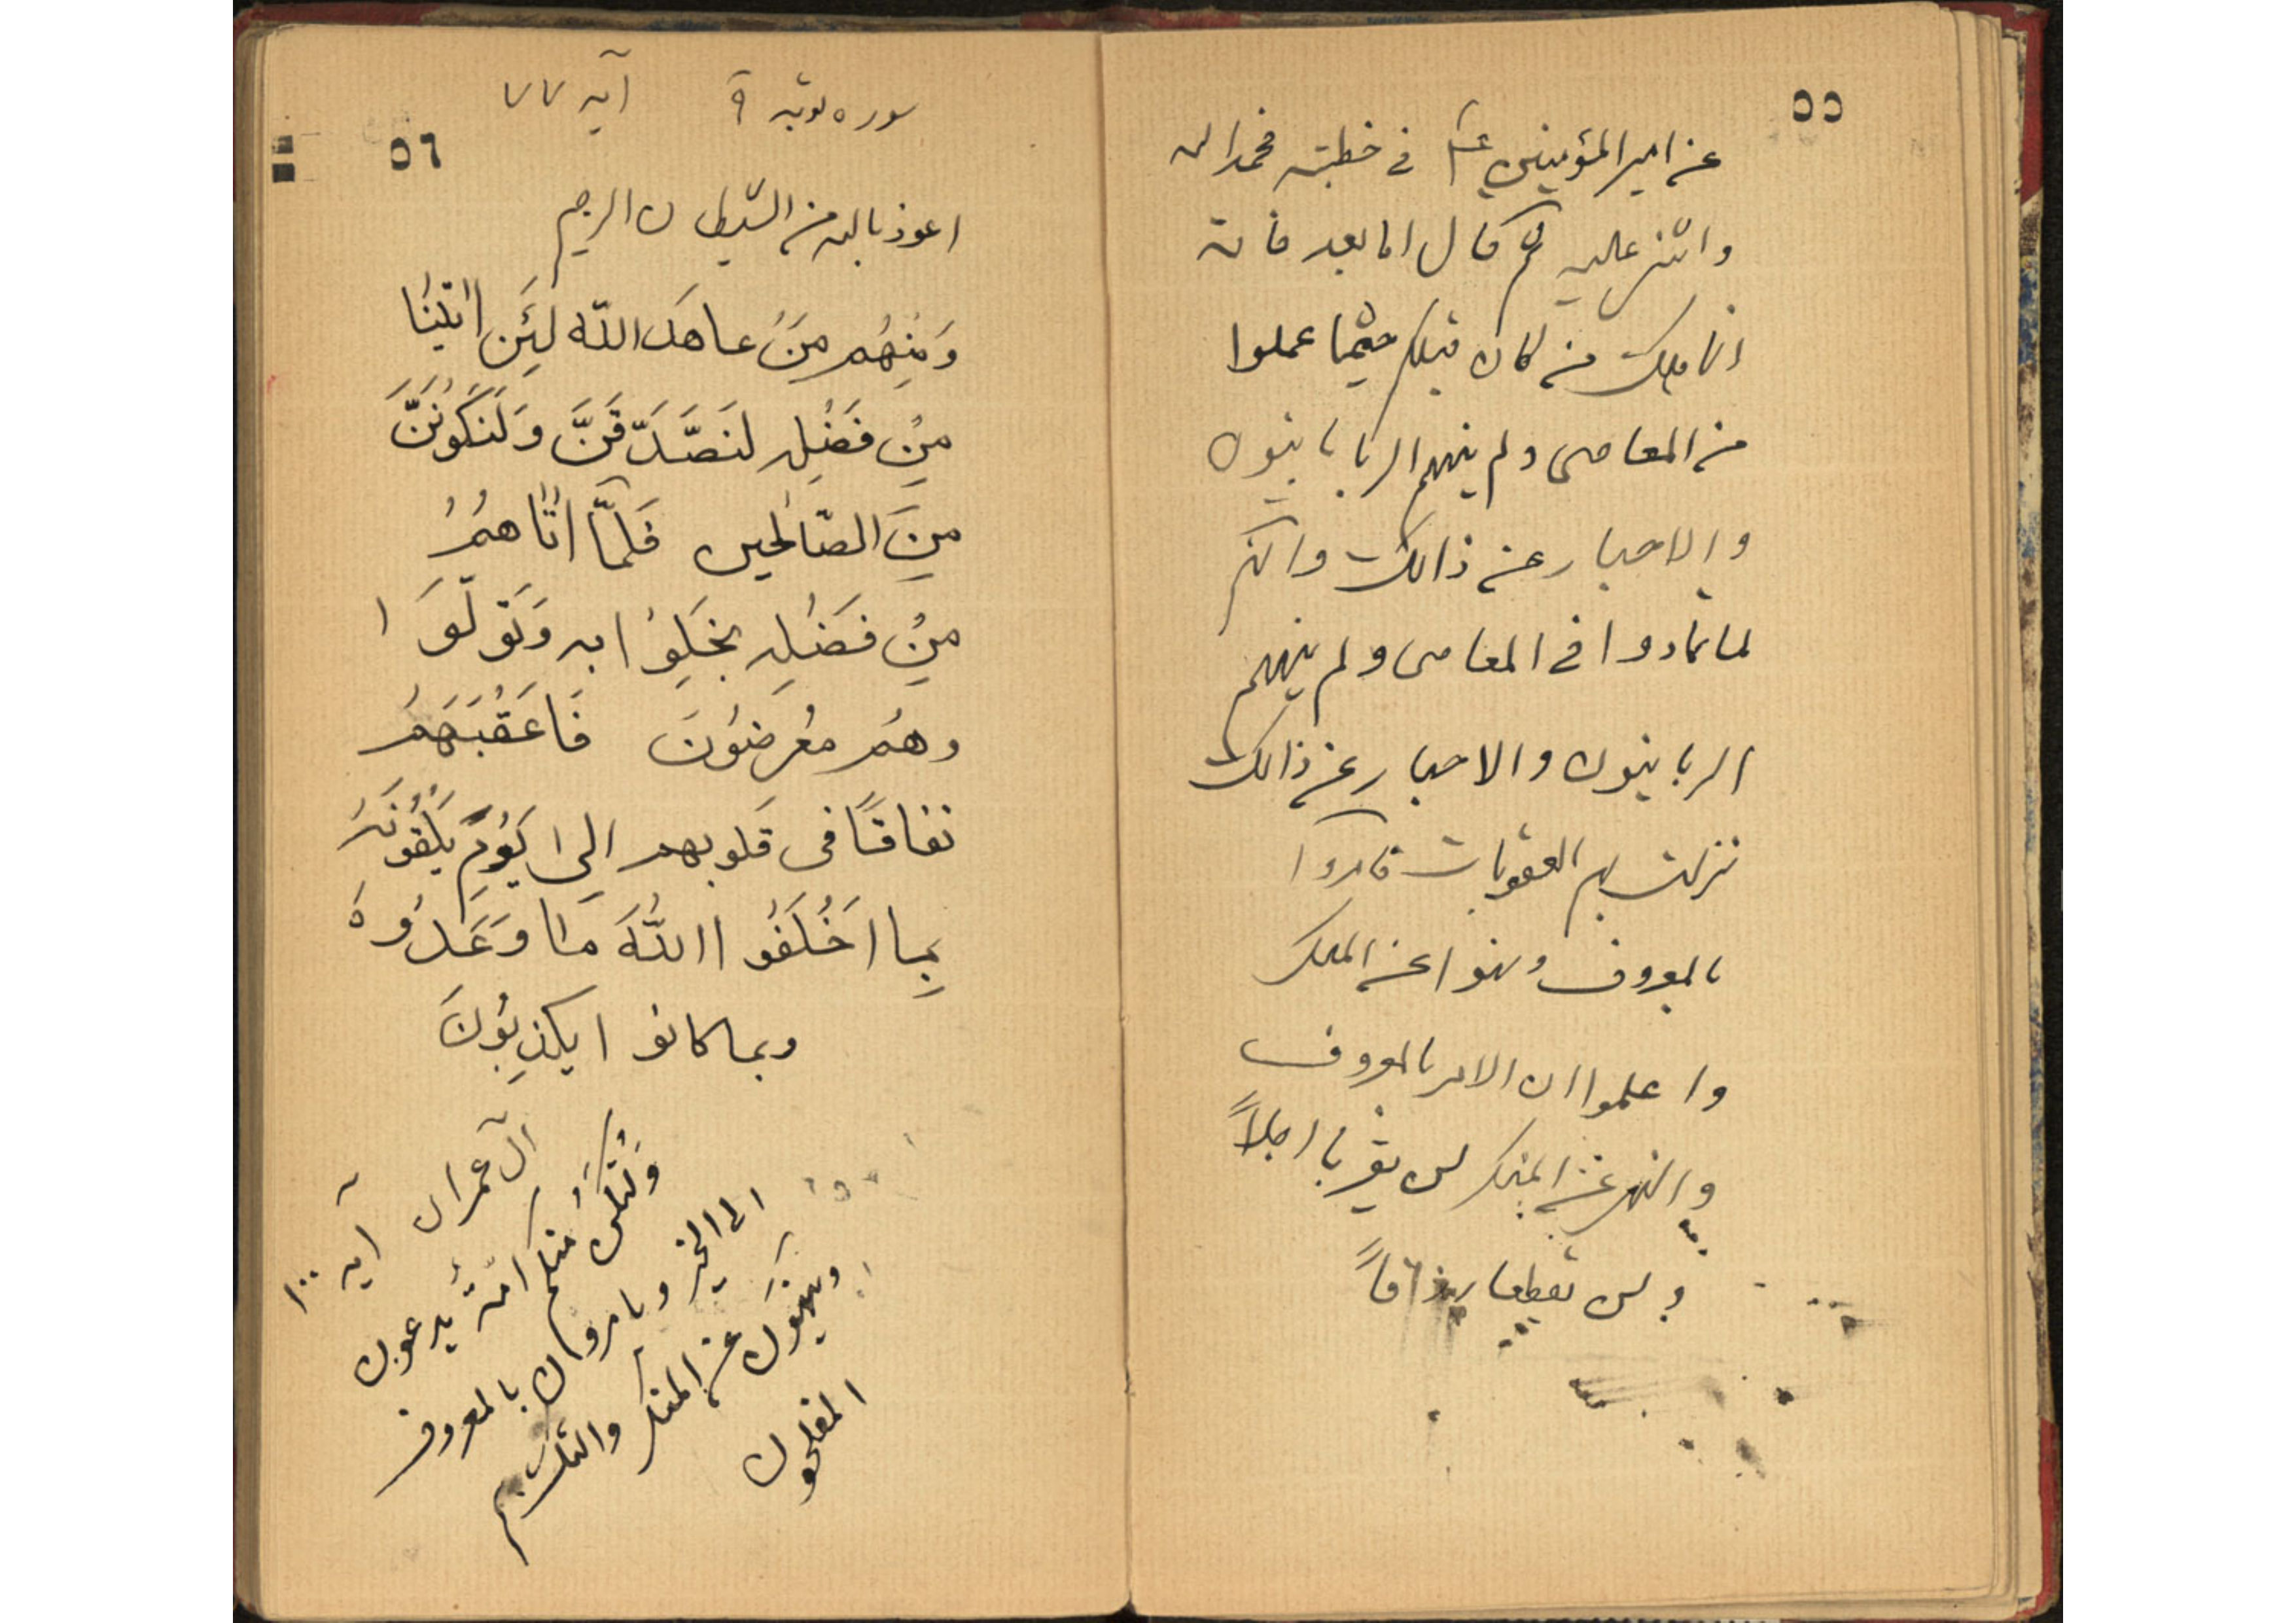 ٥٥
عن امیر المؤمنین ع فی خطبته فحمد الله
واثنی علیه ثم قال اما بعد فانه
انما هلک من کان قبلکم حیثما عملوا
من المعاصی ولم ینههم الربانیون
والاحبار عن ذالک وانهم
لما تمادوا فی المعاصی ولم ینههم
الربانیون والاحبار عن ذالک
نزلت بهم العقوبات فامروا
بالمعروف ونهوا عن المنکر
واعلموا ان الامر بالمعروف
والنهی عن المنکر لن یقربا اجلاً
ولن یقطعا رزقاً
سوره توبه ٩ آیه ٧٧
٥٦
اعوذ بالله من الشیطان الرجیم
وَمِنْهُم مَنْ عاهَدَ اللّه لَئِن اتَیْنَا
مِنْ فَضْلِهِ لَنَصَّدَّقَنَّ وَلَنَكُونَنَّ
مِنَ الصّالِحین فَلَمّا اتاهُمْ
مِنْ فَضْلِهِ بَخِلُوا به وَتَوَلَّوَا
وهُم مُعْرِضُونَ فَاَعْقَبَهُمْ
نفاقًا فی قلوبهم اِلی یَوْمِ یَلْقَوْنَهُ
بِما اَخْلَفُوا اللّهَ مَا وَعَدُوهُ
وبما کانوا یکذِبُونَ
آل عمران آیه ١٠٠
وَلْتَکُن منکم امّةٌ یدعون
الی الخیر ویامرون بالمعروف
وینهون عن المنکر واولئک هم
المفلحون